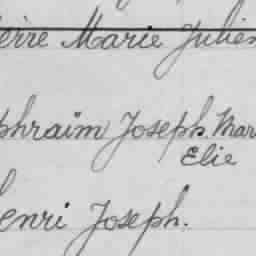 ierre Marie Julien
phraim Joseph Mar
Elie
enri Joseph.